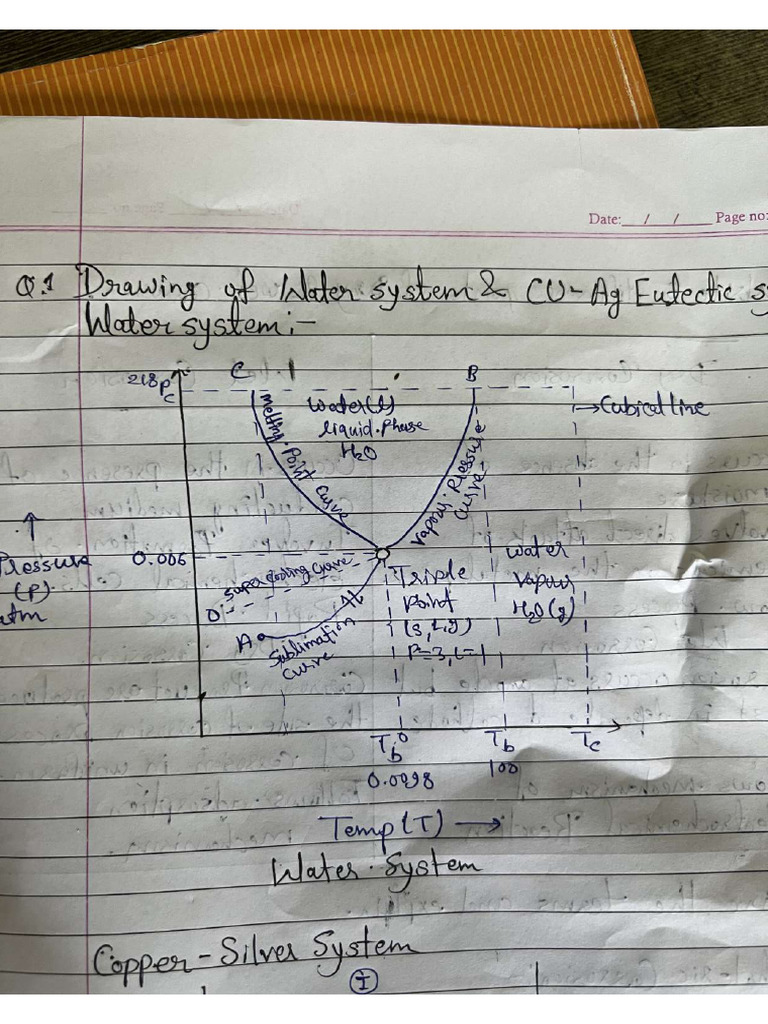 Date: __/__/____ Page no:
Q.1 Drawing of Water system & CU-Ag Eutectic s
Water system:-
218 Pc
C
B
Water(l)
liquid.Phase
H2O
→Cubical line
Melting Point curve
Vapour Pressure
curve
↑
Pressure
(P)
atm
0.006
Super cooling curve
water
vapour
H2O(g)
Triple
Point
(s,l,g)
P=3, C=1
D
A
Sublimation
curve
Tb°
Tb
Tc
0.0098
100
Temp(T) →
Water System
Copper-Silver System
I